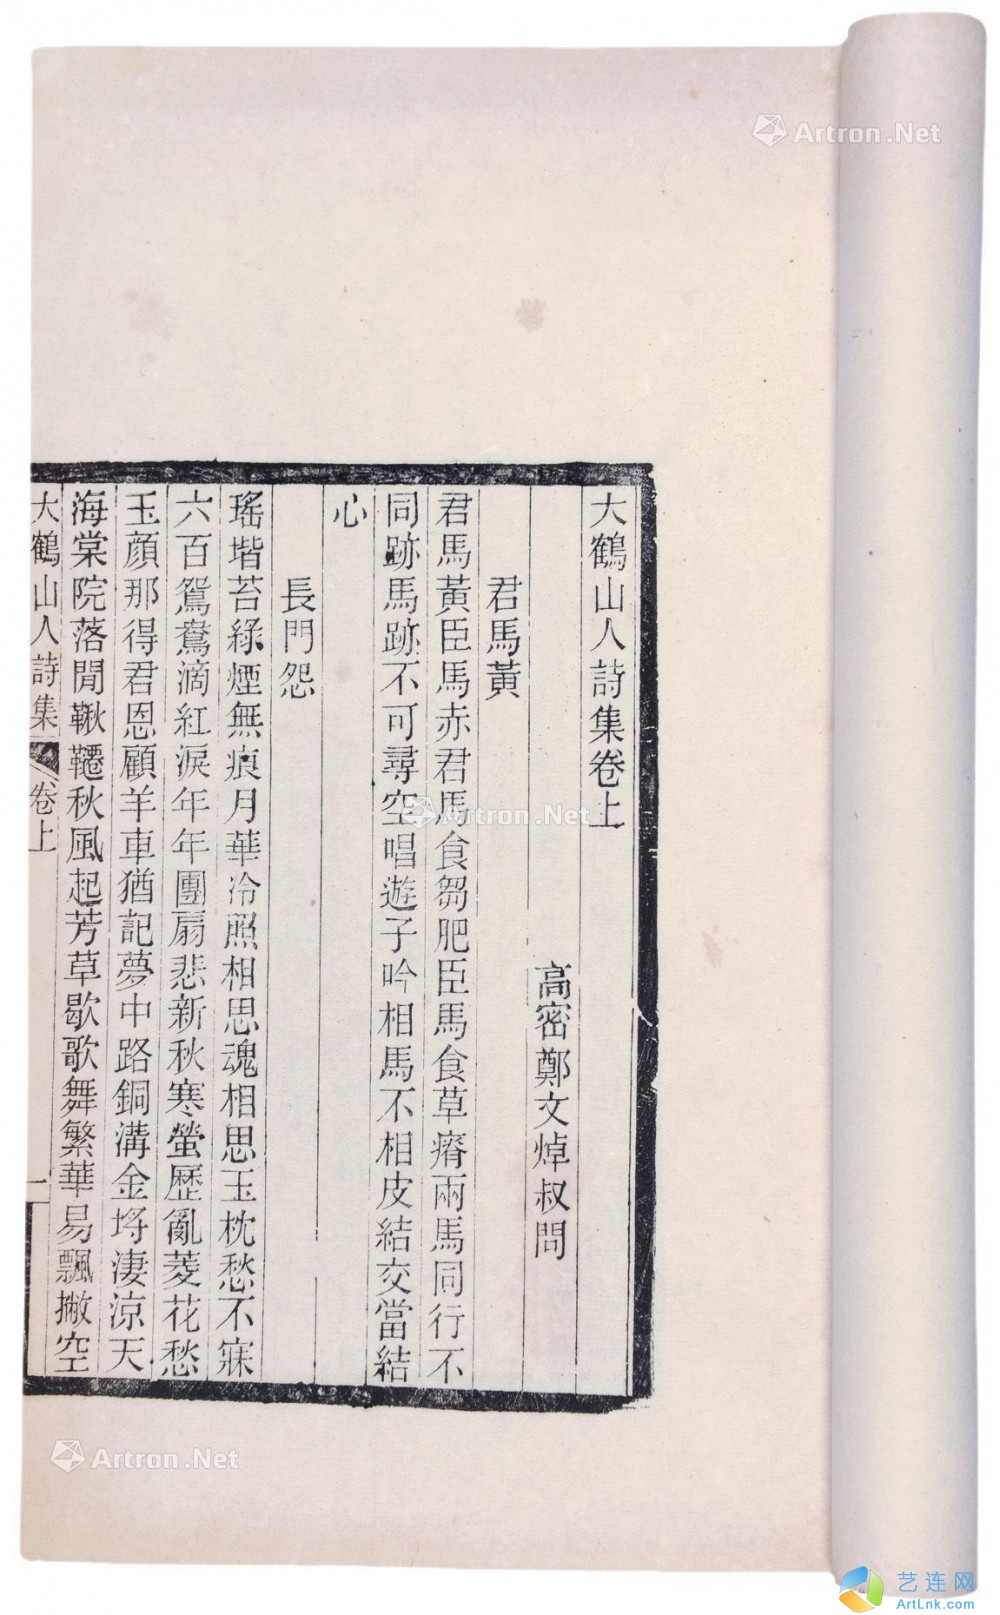 大鶴山人詩集卷上
高密鄭文焯叔問
君馬黃
君馬黃臣馬赤君馬食芻肥臣馬食草瘠兩馬同行不
同跡馬跡不可尋空唱遊子吟相馬不相皮結交當結
心
長門怨
瑤堦苔綠煙無痕月華冷照相思魂相思玉枕愁不寐
六百鴛鴦滴紅淚年年團扇悲新秋寒螢歷亂菱花愁
玉顏那得君恩顧羊車猶記夢中路銅溝金埒淒涼天
海棠院落閒鞦韆秋風起芳草歇歌舞繁華易飄撇空
大鶴山人詩集 卷上 一
Artron.Net
Artron.Net
Artron.Net
艺连网
ArtLnk.com